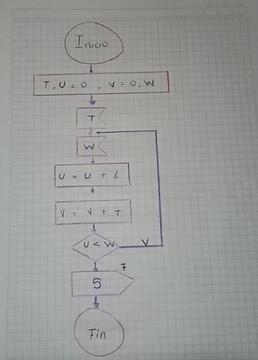 Inicio
T, U = 0 , V = 0, W
T
W
U = U + 1
V = V + T
U < W V
F
S
Fin